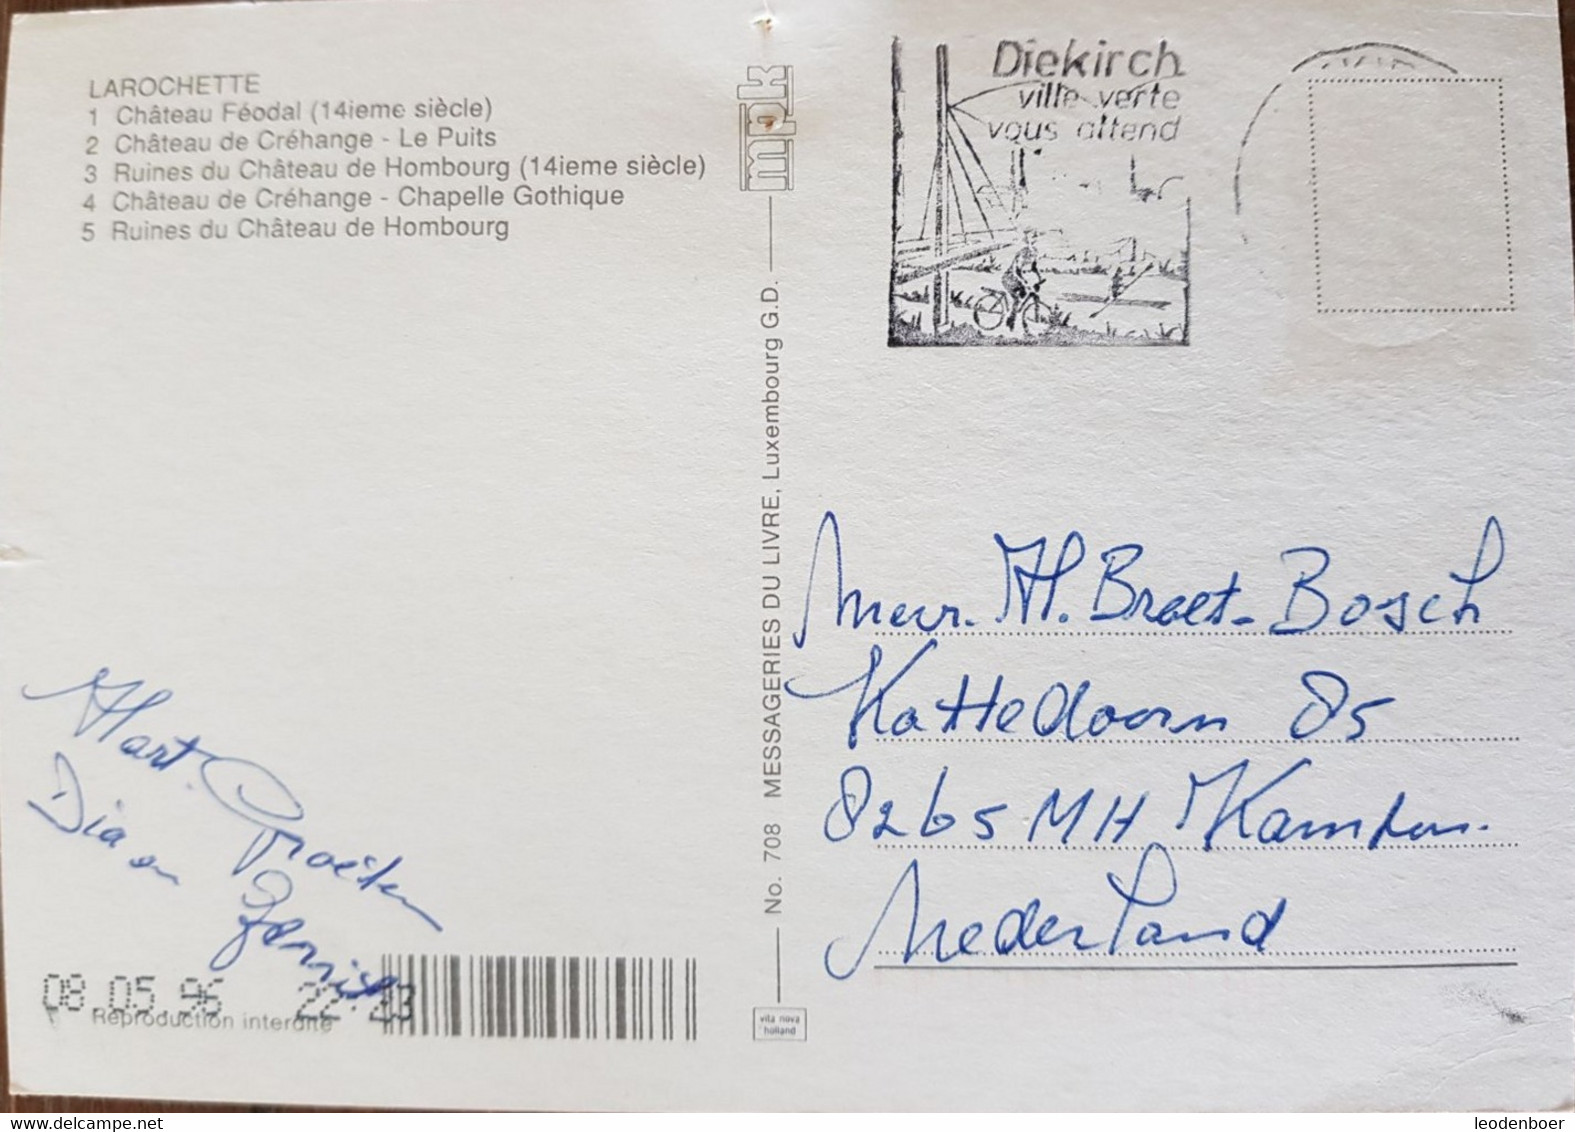 LAROCHETTE
1 Château Féodal (14ieme siècle)
2 Château de Créhange - Le Puits
3 Ruines du Château de Hombourg (14ieme siècle)
4 Château de Créhange - Chapelle Gothique
5 Ruines du Château de Hombourg
mpk
No. 708 MESSAGERIES DU LIVRE, Luxembourg G.D.
Diekirch
ville verte
vous attend
Mevr. H. Breet-Bosch
Kattedoorn 85
8265 MH Kampen.
Nederland
Hart. Groeten
Dia en
08.05.96 22-23
Reproduction interdite
vita nova
holland
delcampe.net
leodenboer